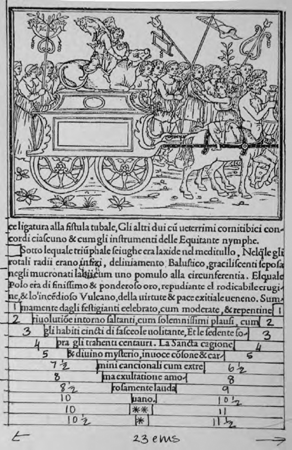 ce ligatura alla fistula tubale, Gli altri dui cū ueterrimi cornitibici con-
cordi ciascuno & cum gli instrumenti delle Equitante nymphe.
Sotto lequale triūphale seiughe era laxide nel meditullo, Nelq̄le gli
rotali radii erano infixi, deliniamento Balustico, graciliscenti seposa
negli mucronati labii cum uno pomulo alla circunferentia. Elquale
Polo era di finissimo & ponderoso oro, repudiante el rodicabile erugi-
ne, & lo'incēdioso Vulcano, della uirtute & pace exitiale ueneno. Sum-
1 mamente dagli festigianti celebrato, cum moderate, & repentine 1
2 riuolutiōe intorno saltanti, cum solemnissimi plausi, cum 2
3 gli habiti cincti di fasceole uolitante, Et le sedente so- 3
4 pra gli trahenti centauri. La Sancta cagione 4
5 & diuino mysterio, inuoce cōsone & car- 5
7 ½ mini cancionali cum extre 6 ½
8 ma exultatione amo- 8
8 ½ rosamente lauda 9
10 uano. 10 ½
10 ** 11
10 ½ * 11 ½
← 23 ems →